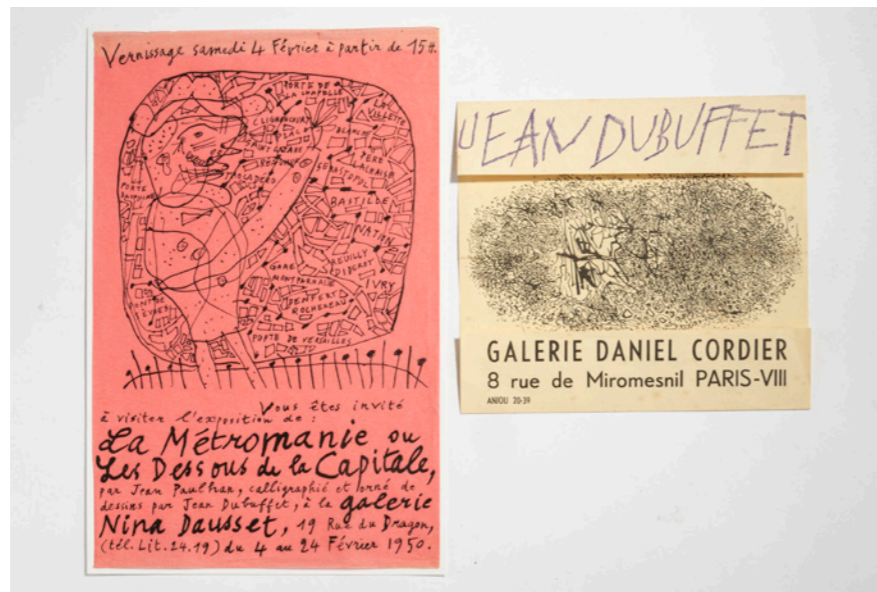 Vernissage samedi 4 Février à partir de 15 h.
PORTE DE
LA CHAPELLE
LA
VILLETTE
CLIGNANCOURT
BLANCHE
SAINT LAZARE
PERE
LACHAISE
SEBASTOPOL
TROCADERO
PORTE
DAUPHINE
BASTILLE
NATION
REUILLY
DIDEROT
GARE
MONTPARNASSE
IVRY
DENFERT
ROCHEREAU
PONT DE
SÈVRES
PORTE DE VERSAILLES
Vous êtes invité
à visiter l'exposition de :
La Métromanie ou
Les Dessous de la Capitale,
par Jean Paulhan, calligraphié et orné de
dessins par Jean Dubuffet, à la galerie
Nina Dausset, 19 Rue du Dragon,
(tél. Lit. 24.19) du 4 au 24 Février 1950.
JEAN DUBUFFET
GALERIE DANIEL CORDIER
8 rue de Miromesnil PARIS-VIII
ANJOU 20-39